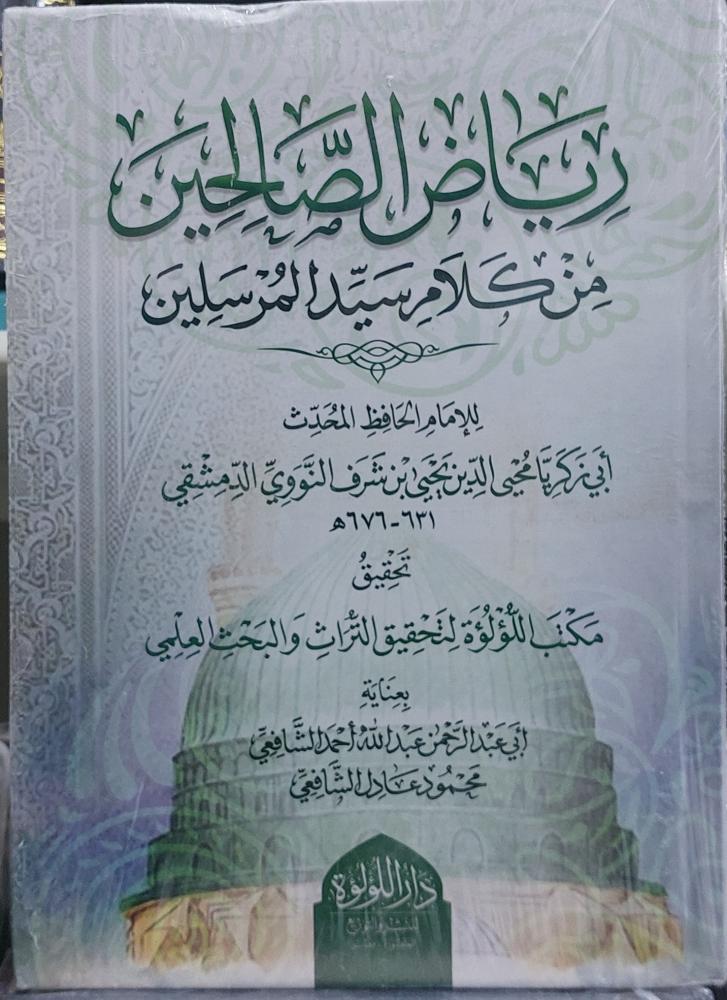 رِيَاضُ الصَّالِحِينَ
مِنْ كَلَامِ سَيِّدِ المُرْسَلِينَ
لِلإِمَامِ الحَافِظِ المُحَدِّثِ
أَبِي زَكَرِيَّا مُحْيِي الدِّينِ يَحْيَى بْنِ شَرَفِ النَّوَوِيِّ الدِّمِشْقِي
٦٣١-٦٧٦هـ
تَحْقِيقُ
مَكْتَبِ اللُّؤْلُؤَةِ لِتَحْقِيقِ التُّرَاثِ وَالبَحْثِ العِلْمِي
بِعِنَايَةِ
أَبِي عَبْدِ الرَّحْمٰنِ عَبْدِ اللهِ أَحْمَدَ الشَّافِعِيِّ
مَحْمُود عَادِل الشَّافِعِيِّ
دَارُ اللُّؤْلُؤَةِ
للنشر والتوزيع